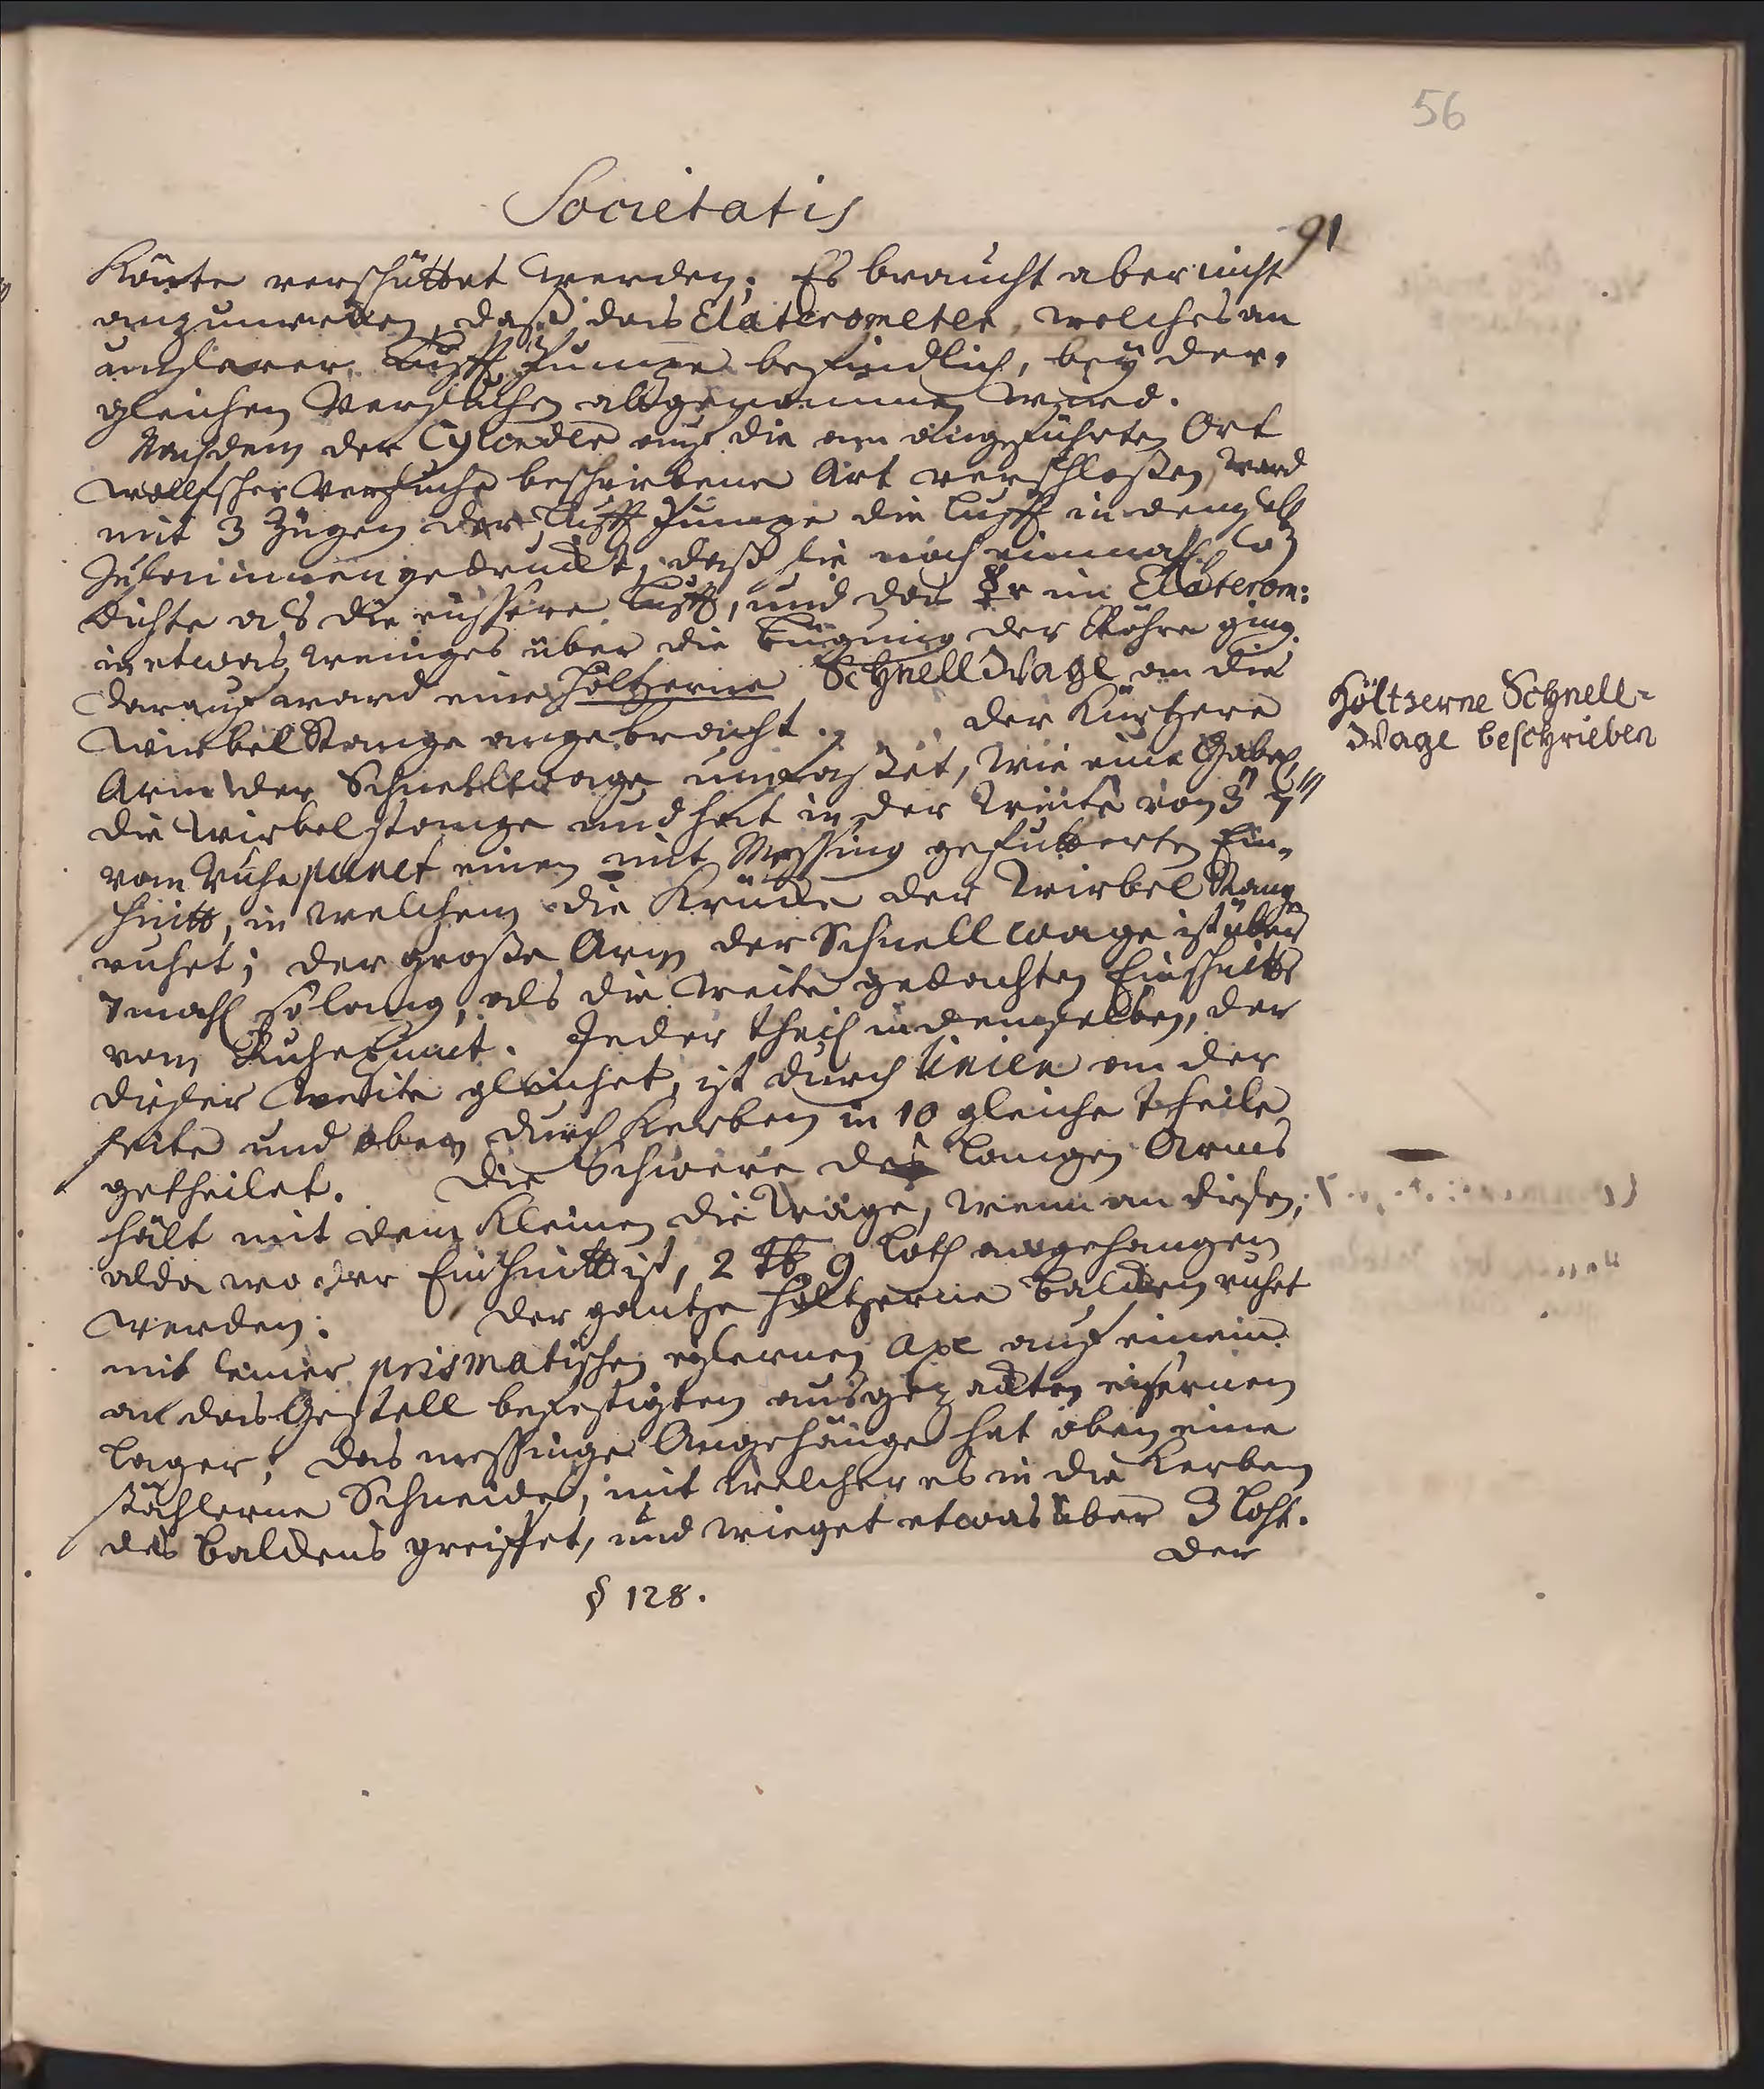 56
Societatis
91
Könte verschüttet werden; Es braucht aber nicht
anzumerken, daß das Elaterometer, welches an
unserer Lufft Pumpe befindlich, bey der-
gleichen Versuchen abgenommen wird.
Nachdem der Cylinder auf die am angeführten Ort
Wolffscher Versuche beschriebene Art verschloßen, ward
mit 3 Zügen der Lufft Pumpe die Lufft in demselb
zusammengedrückt, daß sie noch einmahl so
dichte als die äussere Lufft, und das ☿ im Elaterom:
in etwas weniges über die Bügung der Röhre ging.
Darauf ward eine höltzerne Schnell Wage an die
Wirbel Stange angebracht. Der kürtzere
Arm der Schnellwage umfaßet, wie eine Gabel,
die Wirbelstange und hat in der Weite von 3" 7'''
vom Ruhepunct einen mit Messing gefutterten Ein-
schnitt, in welchem die Krücke der Wirbel Stang
ruhet; der große Arm der Schnellwage ist über
7mahl so lang, als die Weite gedachten Einschnitts
vom Ruhepunct. Jeder theil in demselben, der
dieser Weite gleichet, ist durch Linien an der
seite und oben durch Kerben in 10 gleiche Theile
getheilet. Die Schwere des langen Arms
hält mit dem Kleinen die Wage, wenn an diesen,
alda wo der Einschnitt ist, 2 ℔ 9 Loth angehangen
werden. Der gantze höltzerne Balcken ruhet
mit seiner prismatischen eysernen Axe auf einem
an das Gestell befestigten ausgezackten eisernen
Lager; das messinge Angehänge hat oben eine
stählerne Schneide, mit welcher es in die Kerben
des Balckens greiffet, und wieget etwas über 3 Loht.
Der
§ 128.
Höltzerne Schnell-
Wage beschrieben